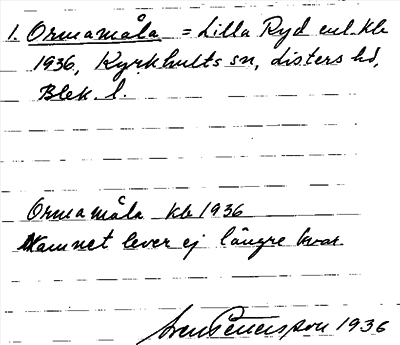 1. Ormamåla = Lilla Ryd enl. kb
1936, Kyrkhults sn, Listers hd,
Blek. l.
Ormamåla kb 1936
Namnet lever ej längre kvar.
Sven Pettersson 1936